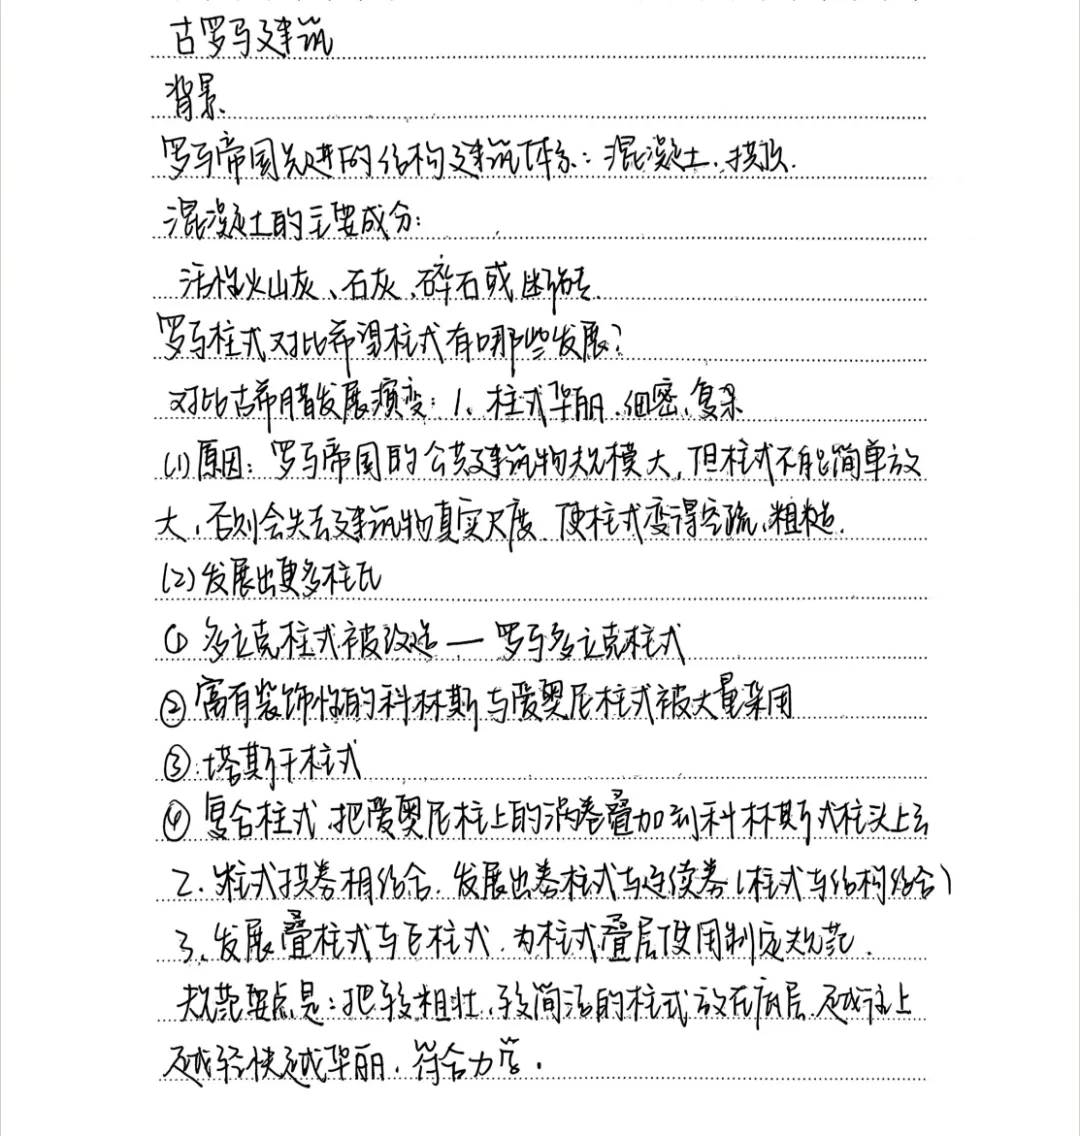 古罗马建筑
背景、
罗马帝国先进的结构建筑体系：混凝土、拱顶.
混凝土的主要成分：
活性火山灰、石灰、碎石或断砖.
罗马柱式对比希腊柱式有哪些发展？
对比古希腊发展演变：1、柱式华丽、细密、复杂
(1)原因：罗马帝国的公共建筑物规模大，但柱式不能简单放
大，否则会失去建筑物真实尺度、使柱式变得空疏、粗糙.
(2)发展出更多柱式
① 多立克柱式被改造 — 罗马多立克柱式
② 富有装饰性的科林斯与爱奥尼柱式被大量采用
③ 塔斯干柱式
④ 复合柱式 把爱奥尼柱上的涡卷叠加到科林斯式柱头上去
2、柱式拱券相结合、发展出券柱式与连续券(柱式与结构结合)
3、发展叠柱式与巨柱式、为柱式叠层使用制定规范.
规范要点是：把较粗壮、较简洁的柱式放在底层、越往上
越轻快越华丽、符合力学.